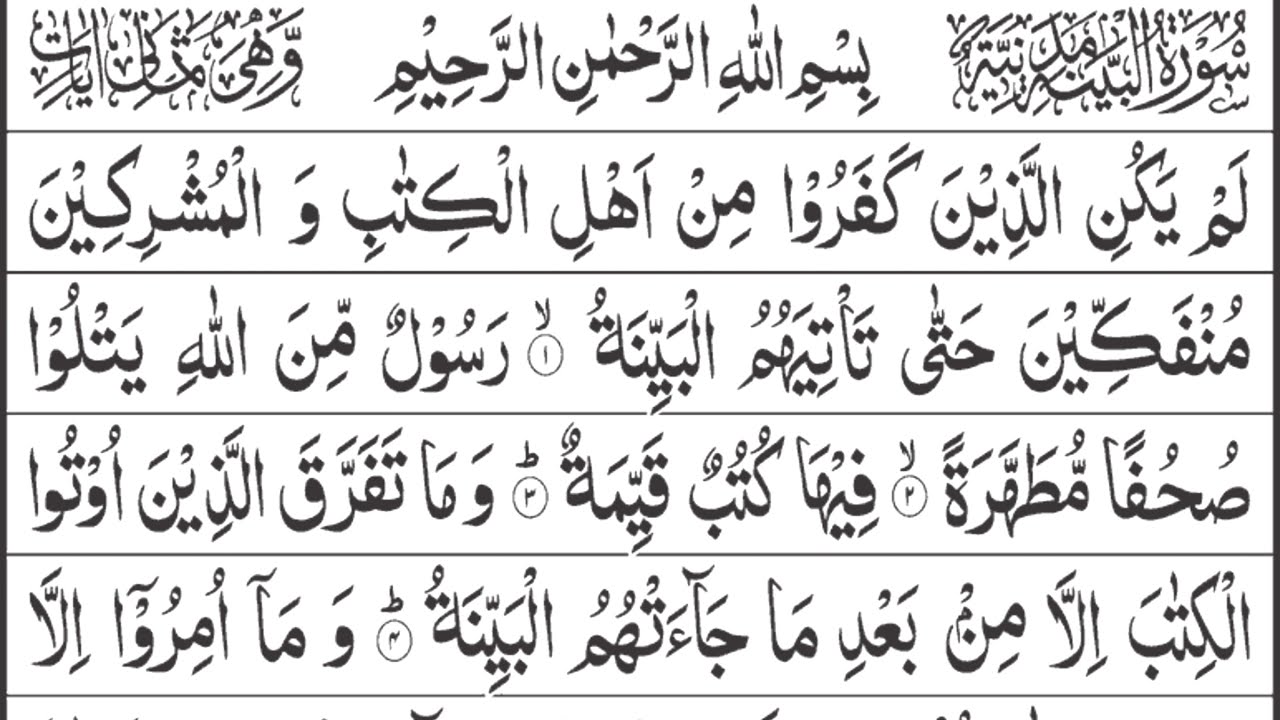 سُوْرَةُ الْبَيِّنَةِ مَدَنِيَّةٌ بِسْمِ اللّٰهِ الرَّحْمٰنِ الرَّحِيْمِ وَّهِىَ ثَمَانِىْ اٰيَاتٍ
لَمْ يَكُنِ الَّذِيْنَ كَفَرُوْا مِنْ اَهْلِ الْكِتٰبِ وَ الْمُشْرِكِيْنَ
مُنْفَكِّيْنَ حَتّٰى تَاْتِيَهُمُ الْبَيِّنَةُ ۙ﴿۱﴾ رَسُوْلٌ مِّنَ اللّٰهِ يَتْلُوْا
صُحُفًا مُّطَهَّرَةً ۙ﴿۲﴾ فِيْهَا كُتُبٌ قَيِّمَةٌ ؕ﴿۳﴾ وَ مَا تَفَرَّقَ الَّذِيْنَ اُوْتُوا
الْكِتٰبَ اِلَّا مِنْۢ بَعْدِ مَا جَآءَتْهُمُ الْبَيِّنَةُ ؕ﴿۴﴾ وَ مَاۤ اُمِرُوْۤا اِلَّا